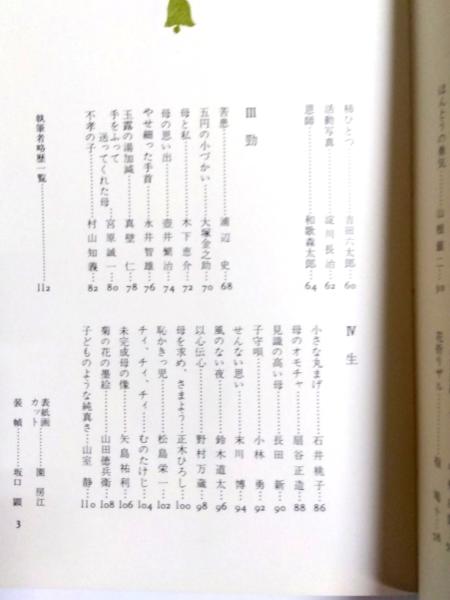 ほんとうの勇気……山
柿ひとつ……吉田六太郎…60
活動写真……淀川長治…62
恩師……和歌森太郎…64
Ⅲ 勁
苦患……浦辺 史…68
五円の小づかい……大塚金之助…70
母と私……木下恵介…72
母の思い出……壺井繁治…74
やせ細った手首……永井智雄…76
玉露の湯加減……真壁 仁…78
手をふって
送ってくれた母……宮原誠一…80
不孝の子……村山知義…82
執筆者略歴一覧……112
Ⅳ 生
小さな丸まげ……石井桃子…86
母のオモチャ……扇谷正造…88
見識の高い母……長田 新…90
子守唄……小林 勇…92
せんない思い……末川 博…94
風のない夜……鈴木道太…96
以心伝心……野村万蔵…98
母を求め、さまよう…正木ひろし…100
恥かきっ児……松島栄一…102
チィ、チィ、チィ……むのたけじ…104
未完成母の像……矢島祐利…106
菊の花の墨絵……山田徳兵衛…108
子どものような純真さ…山室 静…110
表紙画
カット……園 房江
装 幀……坂口 顕
3